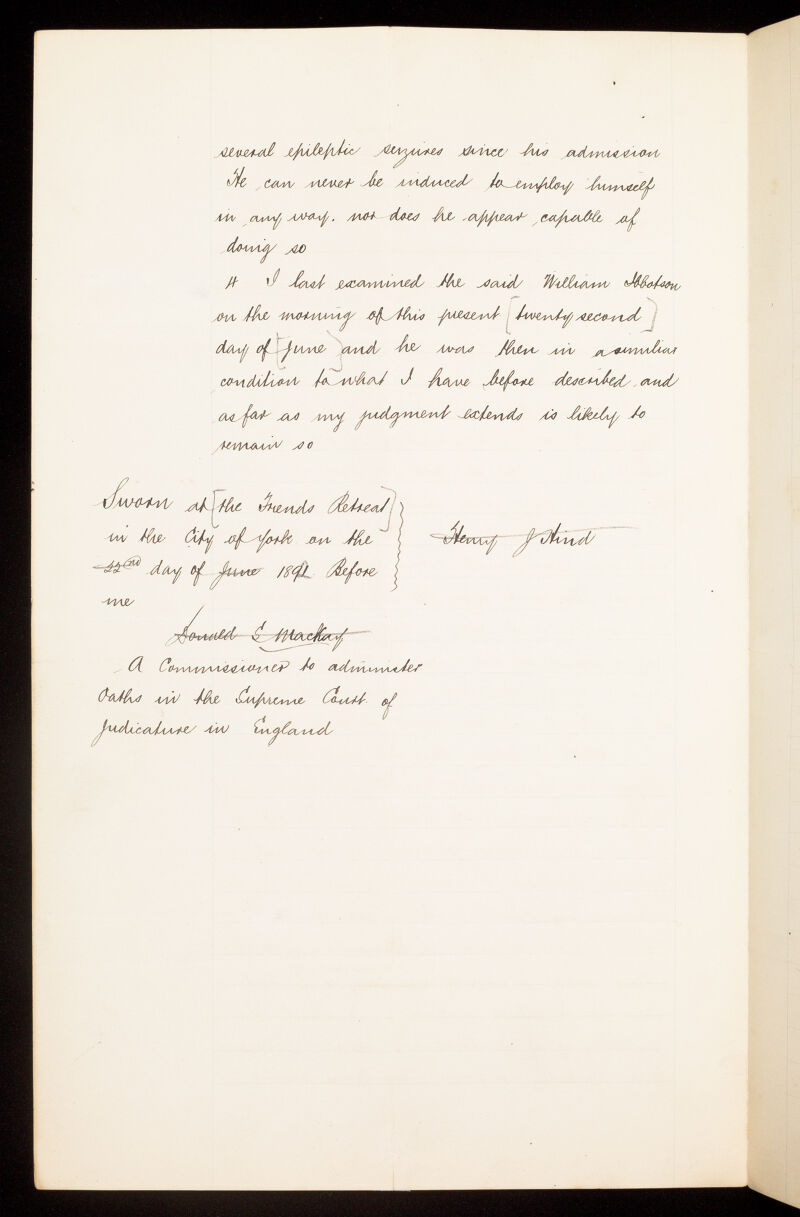 several epileptic seizures since his admission
He can never be induced to employ himself
in any way. nor does he appear capable of
doing so
4 I last examined the said William Ibbotson
on the morning of this present [twenty second]
day of [June] and he was then in a similiar
condition to what I have before described and
as far as my judgment extends is likely to
remain so
Sworn at [the Friends Retreat]
in the City of York on the
22nd day of June 1891 Before
me
Henry J Hind
Donald S Mackay
A Commissioner to administer
Oaths in the Supreme Court of
Judicature in England